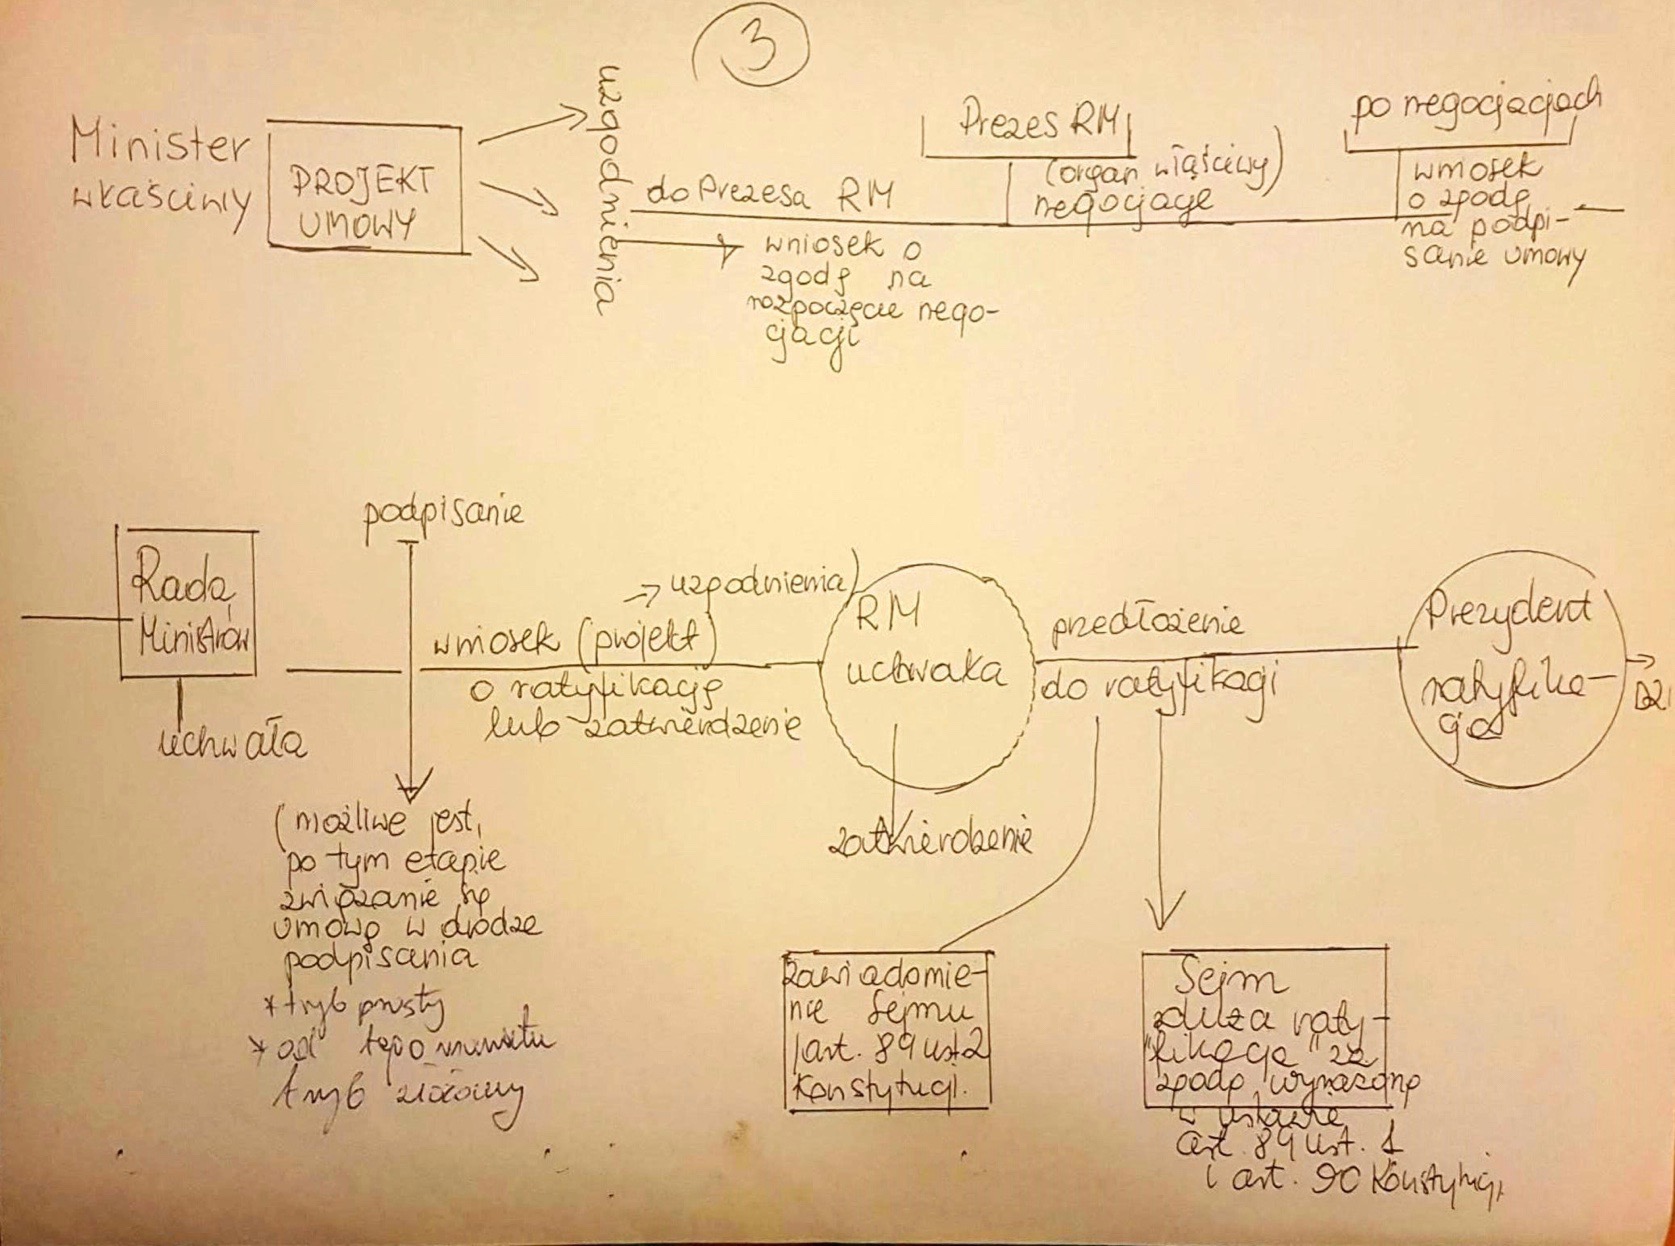 3
Minister
właściwy
PROJEKT
UMOWY
uzgodnienia
do Prezesa RM
wniosek o
zgodę na
rozpoczęcie nego-
cjacji
Prezes RM
(organ właściwy)
negocjacje
po negocjacjach
wniosek
o zgodę
na podpi-
sanie umowy
Rada
Ministrów
uchwała
podpisanie
(możliwe jest,
po tym etapie
związanie się
umową w drodze
podpisania
* tryb prosty
* od tego momentu
tryb złożony
→ uzgodnienia)
wniosek (projekt)
o ratyfikację
lub zatwierdzenie
RM
uchwała
zatwierdzenie
przedłożenie
do ratyfikacji
Zawiadomie-
nie Sejmu
art. 89 ust 2
Konstytucji.
Sejm
"duża raty-
fikacja" za
zgodą wyrażoną
w ustawie
art. 89 ust. 1
i art. 90 Konstytucji
Prezydent
ratyfika-
cja